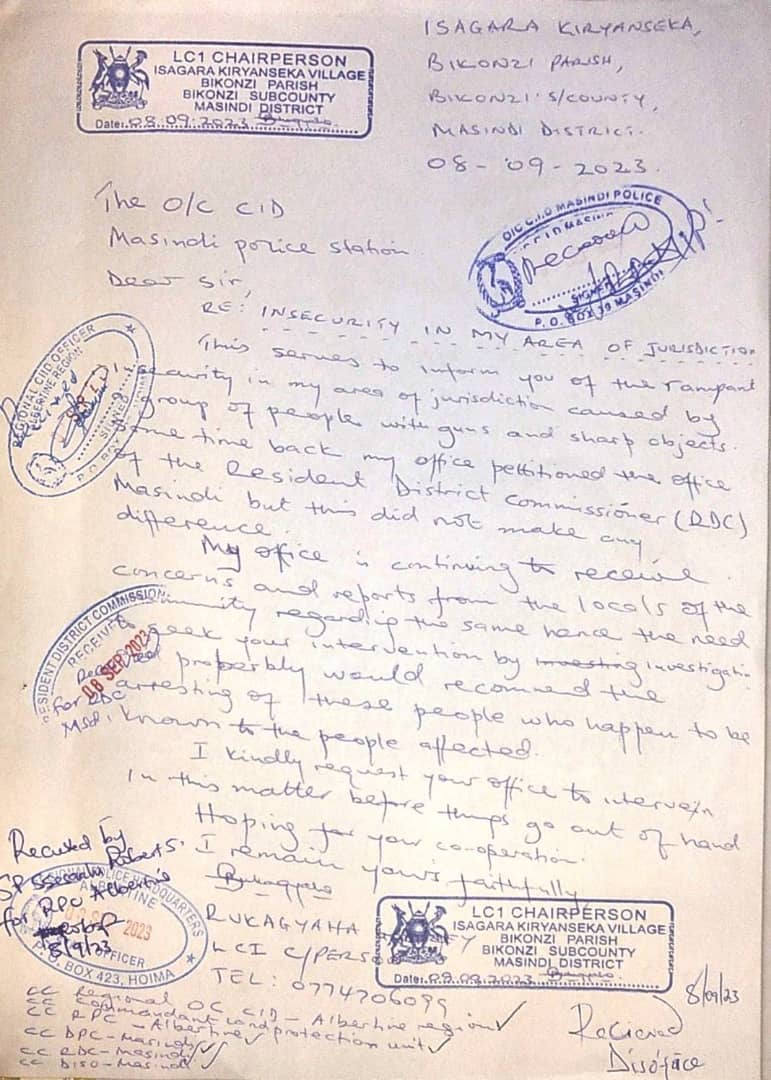 ISAGARA KIRYANSEKA,
BIKONZI PARISH,
BIKONZI S/COUNTY,
MASINDI DISTRICT.
08-09-2023.
LC1 CHAIRPERSON
ISAGARA KIRYANSEKA VILLAGE
BIKONZI PARISH
BIKONZI SUBCOUNTY
MASINDI DISTRICT
Date: 08.09.2023
The O/C CID
Masindi police station.
Dear Sir,
O/C C.I.D MASINDI POLICE
Received
SIGNED
P.O. BOX 19 MASINDI
RE: INSECURITY IN MY AREA OF JURISDICTION
This serves to inform you of the rampant
security in my area of jurisdiction caused by
group of people with guns and sharp objects.
time back my office petitioned the office
of the Resident District Commissioner (RDC)
Masindi but this did not make any
difference.
My office is continuing to receive
concerns and reports from the locals of the
regarding the same hence the need
seek your intervention by investigation
and properbly would recommend the
arresting of these people who happen to be
known to the people affected.
I kindly request your office to intervein
In this matter before things go out of hand
Hoping for your co-operation.
I remain yours faithfully
RUKAGYAHA
LCI C/PERSON
TEL: 0774706099
REGIONAL CIID OFFICER
ALBERTINE REGION
SEP
SIGNED
P.O. BOX
RESIDENT DISTRICT COMMISSION
RECEIVED
08 SEP 2023
Received
for RDC
Msdi
Received by
SP Roberts.
for RPC Albertine
8/9/23
REGIONAL POLICE HEADQUARTERS
ALBERTINE
SEP 2023
OFFICER
P.O. BOX 423, HOIMA
LC1 CHAIRPERSON
ISAGARA KIRYANSEKA VILLAGE
BIKONZI PARISH
BIKONZI SUBCOUNTY
MASINDI DISTRICT
Date: 08.09.2023
8/09/23
Recieved
cc Regional OC CID - Albertine region
cc Commandant land protection unit
cc RPC - Albertine
cc DPC - Masindi
cc RDC - Masindi
cc DISO - Masindi